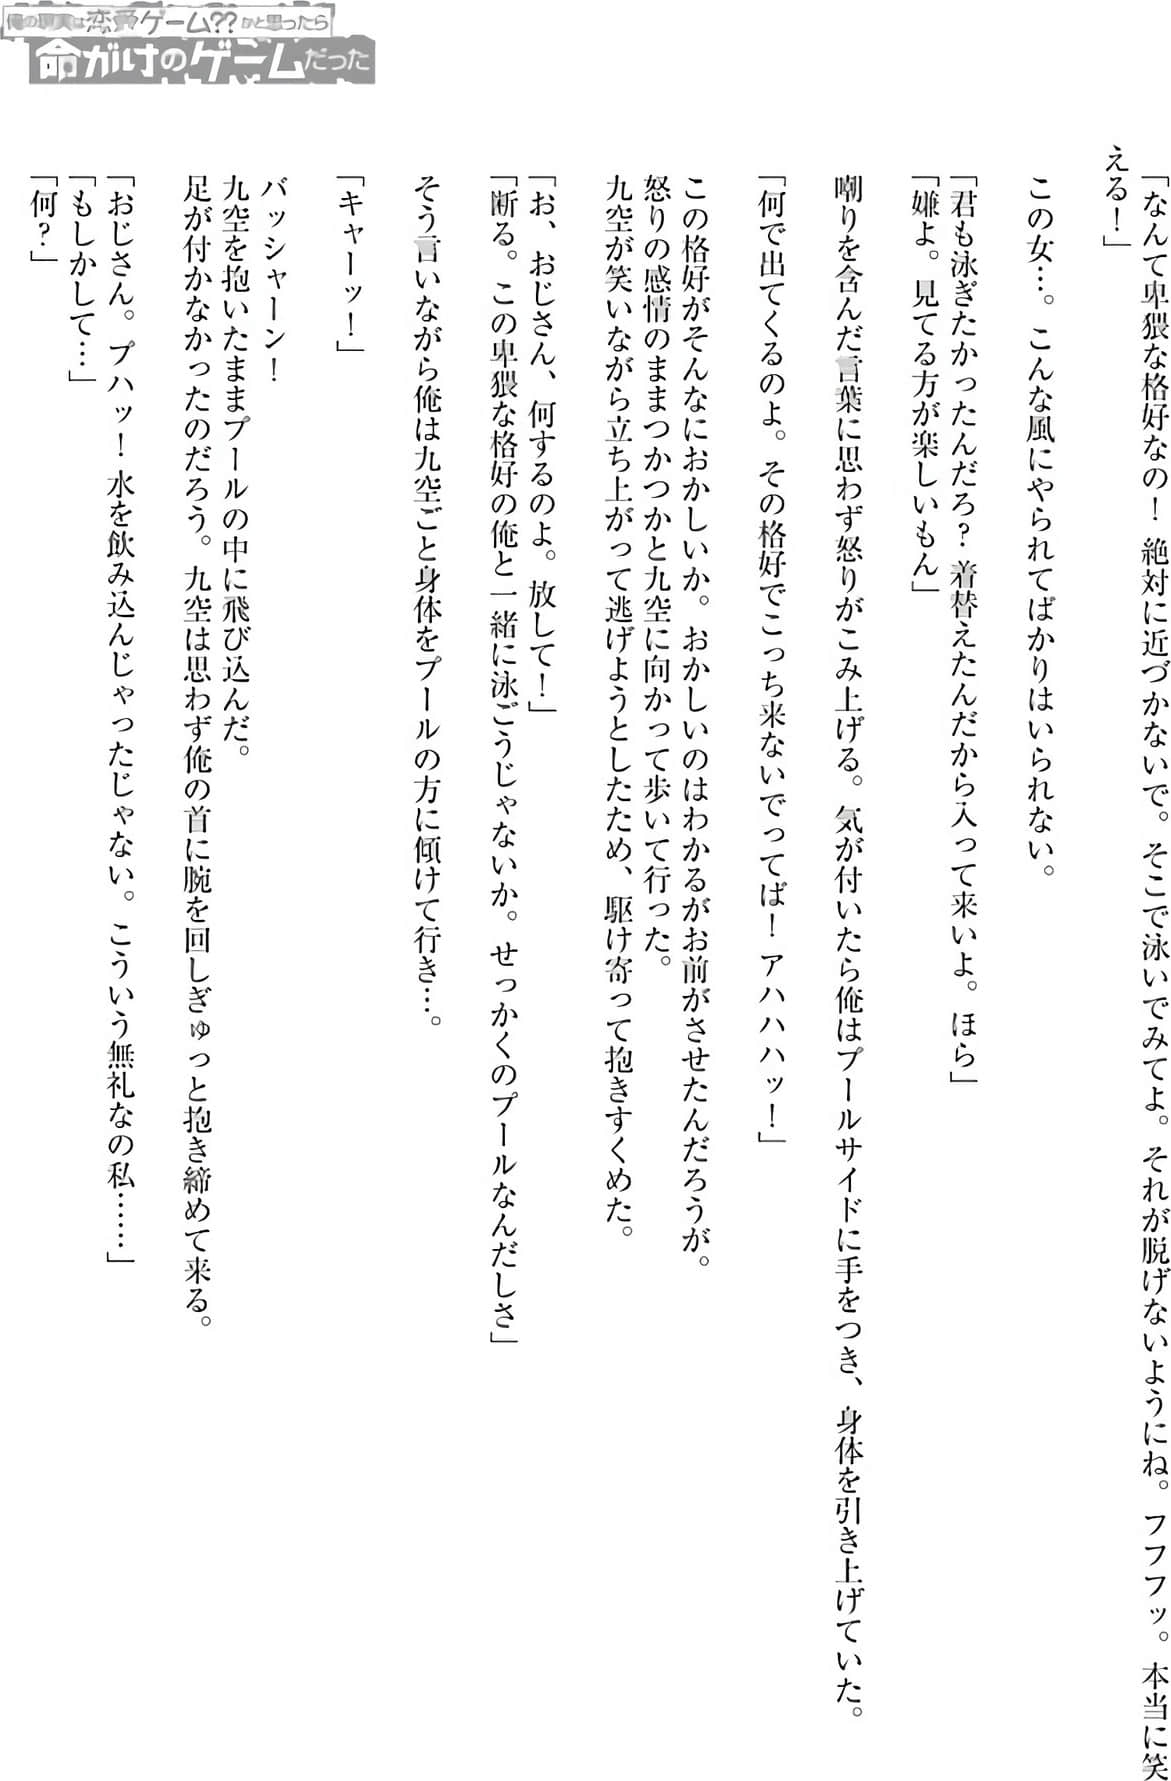 俺の現実は恋愛ゲーム??かと思ったら
命がけのゲームだった
「なんて卑猥な格好なの！ 絶対に近づかないで。そこで泳いでみてよ。それが脱げないようにね。フフフッ。本当に笑
える！」
この女…。こんな風にやられてばかりはいられない。
「君も泳ぎたかったんだろ？ 着替えたんだから入って来いよ。ほら」
「嫌よ。見てる方が楽しいもん」
嘲りを含んだ言葉に思わず怒りがこみ上げる。気が付いたら俺はプールサイドに手をつき、身体を引き上げていた。
「何で出てくるのよ。その格好でこっち来ないでってば！ アハハハッ！」
この格好がそんなにおかしいか。おかしいのはわかるがお前がさせたんだろうが。
怒りの感情のままつかつかと九空に向かって歩いて行った。
九空が笑いながら立ち上がって逃げようとしたため、駆け寄って抱きすくめた。
「お、おじさん、何するのよ。放して！」
「断る。この卑猥な格好の俺と一緒に泳ごうじゃないか。せっかくのプールなんだしさ」
そう言いながら俺は九空ごと身体をプールの方に傾けて行き…。
「キャーッ！」
バッシャーン！
九空を抱いたままプールの中に飛び込んだ。
足が付かなかったのだろう。九空は思わず俺の首に腕を回しぎゅっと抱き締めて来る。
「おじさん。プハッ！ 水を飲み込んじゃったじゃない。こういう無礼なの私……」
「もしかして…」
「何？」